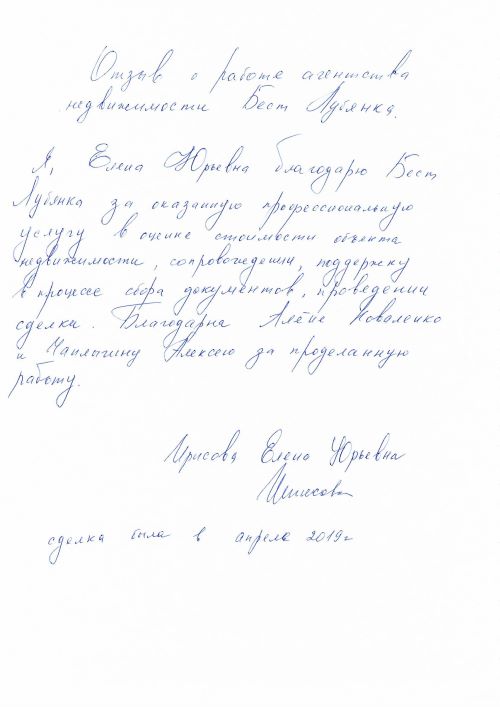 Отзыв о работе агентства
недвижимости Бест Лубянка.
Я, Елена Юрьевна благодарю Бест
Лубянка за оказанную профессиональную
услугу в оценке стоимости объекта
недвижимости, сопровождении, поддержку
в процессе сбора документов, проведении
сделки. Благодарна Алёне Коваленко
и Чаплыгину Алексею за проделанную
работу.
Ирисова Елена Юрьевна
сделка была в апреле 2019г